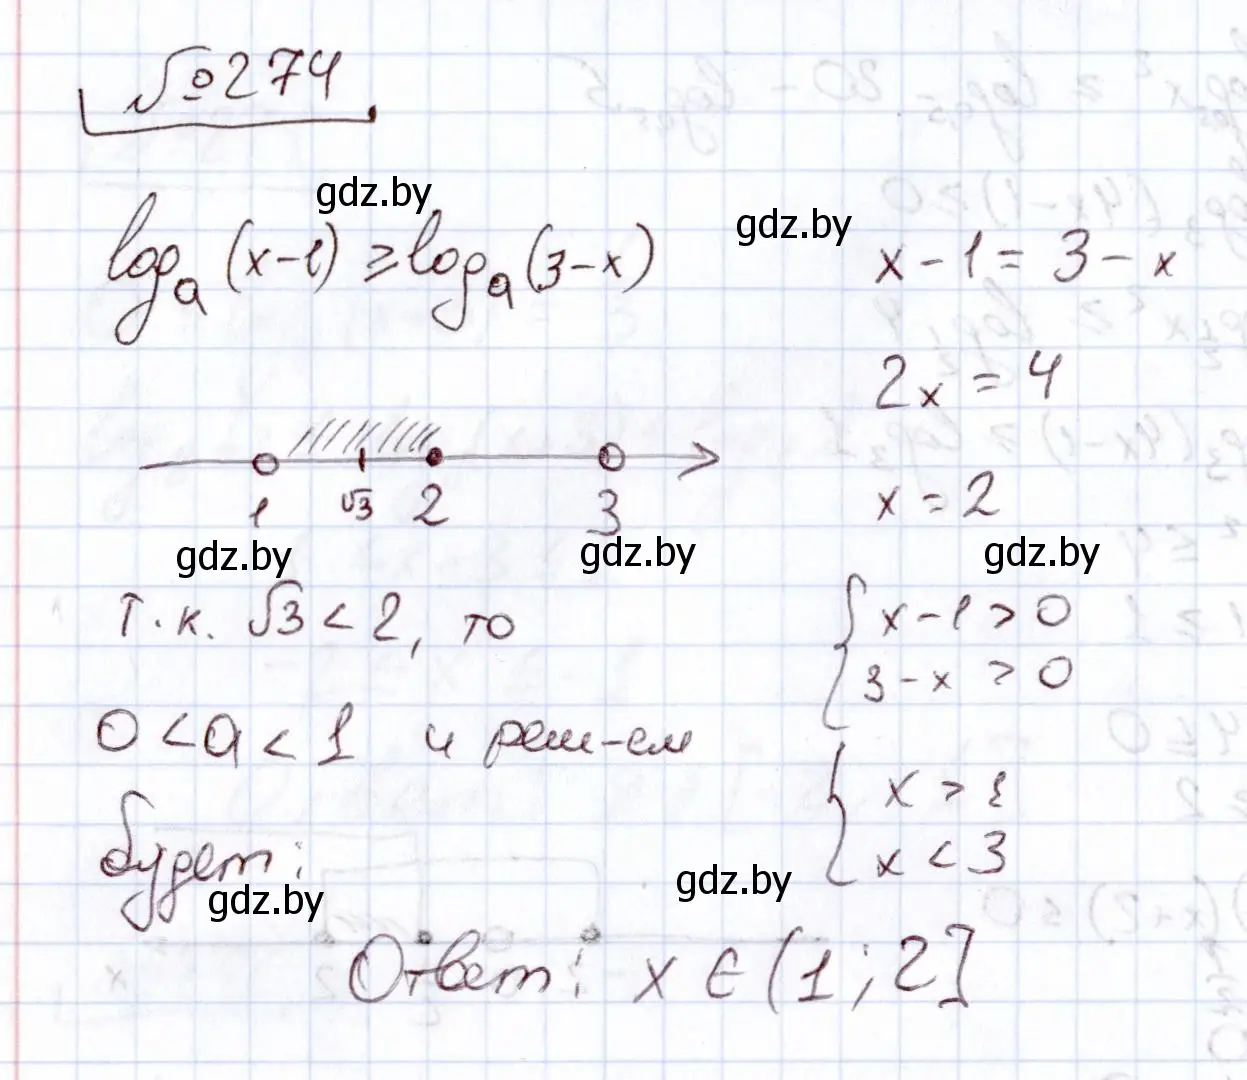 №274
gdz.by
log_a (x-1) ≥ log_a (3-x)
gdz.by
x - 1 = 3 - x
2x = 4
x = 2
1 √3 2 3
gdz.by
gdz.by
gdz.by
т.к. √3 < 2, то
0 < a < 1 и реш-ем
будет:
gdz.by
{ x - 1 > 0
3 - x > 0
{ x > 1
x < 3
gdz.by
Ответ: x ∈ (1; 2]